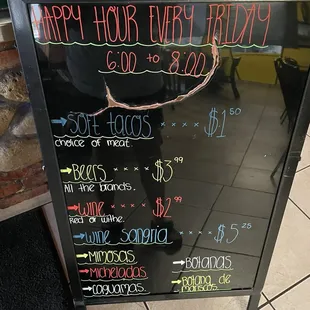 HAPPY HOUR EVERY FRIDAY
6:00 to 8:00
→SOFT tacos ×××× $1⁵⁰
choice of meat.
→Beers ···· $3⁹⁹
All the brands.
→wine ×××× $2⁹⁹
Red or withe.
→wine sangria ···· $5²⁵
→Mimosas
→Botanas
→Micheladas
→Botana de
→Coguamas
Mariscos